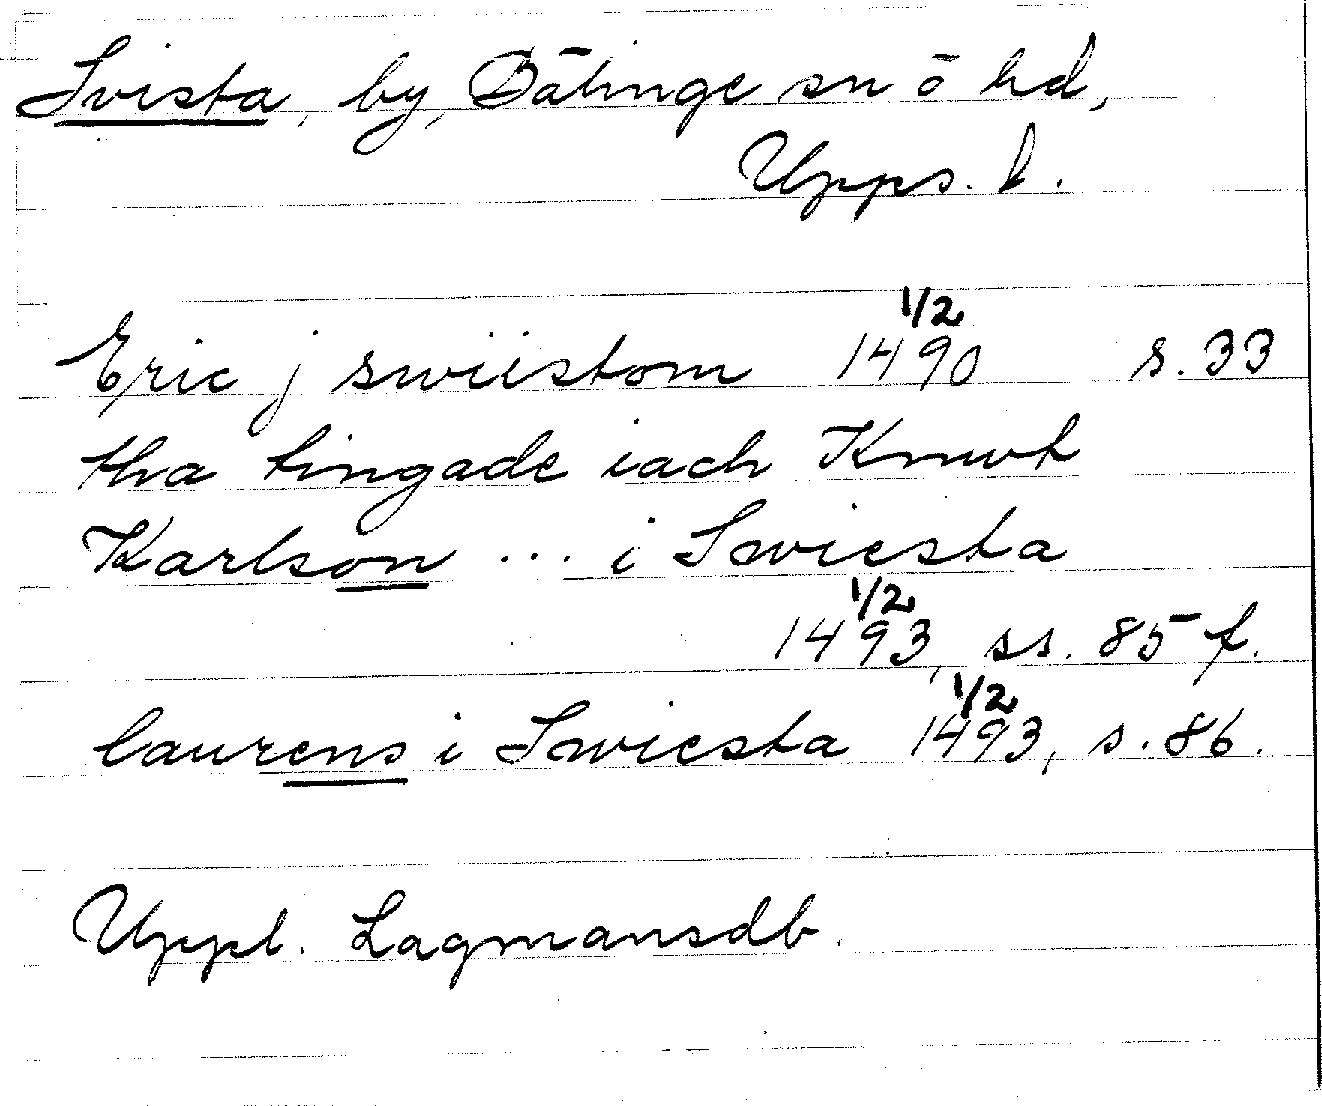 Svista, by, Bälinge sn o hd,
Upps. l.
1/2
Eric j swiistom 1490 s. 33
tha tingade iach Knwt
Karlson ... i Swiesta
1/2
1493, ss. 85 f.
1/2
laurens i Swiesta 1493, s. 86.
Uppl. Lagmansdb.